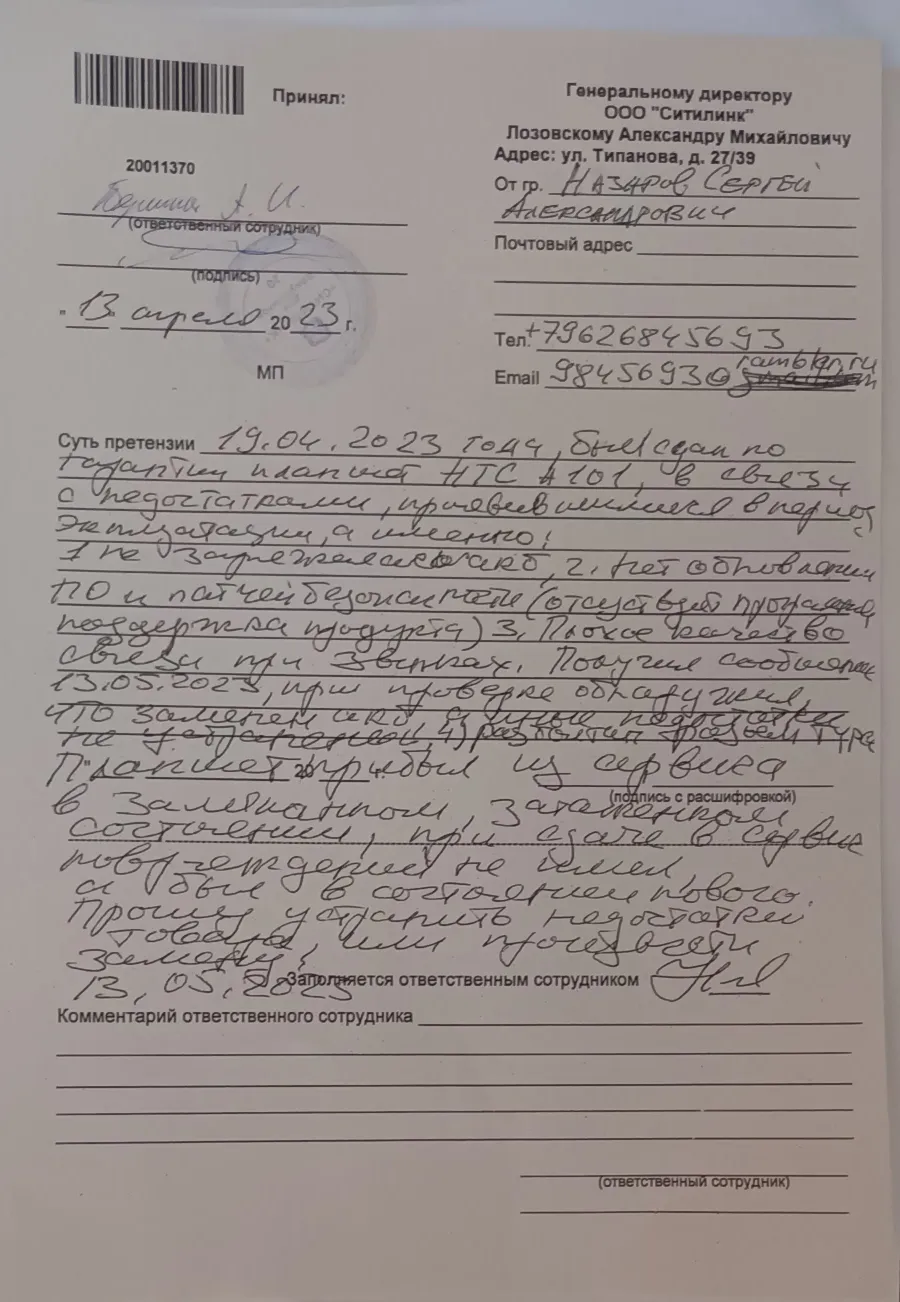 Принял:
20011370
А. И.
(ответственный сотрудник)
(подпись)
"13" апреля 2023 г.
МП
Генеральному директору
ООО "Ситилинк"
Лозовскому Александру Михайловичу
Адрес: ул. Типанова, д. 27/39
От гр. Назаров Сергей
Александрович
Почтовый адрес
Тел. +79626845693
rambler.ru
Email 9845693@
Суть претензии 19.04.2023 года, был сдан по
гарантии планшет HTC A101, в связи
с недостатками, проявившимися в период
эксплуатации, а именно:
1 не заряжалась акб, 2. Нет обновлении
ПО и патчей безопасности (отсуствует програмная
поддержка продукта) 3. Плохое качество
связи при звонках. Получил сообщение
13.05.2023, при проверке обнаружил,
что заменен акб, а иные недостатки
не устранены, 4) разъем
Планшет прибыл из сервиса
(подпись с расшифровкой)
в заляпанном,
состоянии, при сдаче в сервис
повреждений не имел,
а был в состоянии нового.
Прошу устранить недостатки
товара, или произвести
замену.
13.05.2023
Заполняется ответственным сотрудником
Комментарий ответственного сотрудника
(ответственный сотрудник)